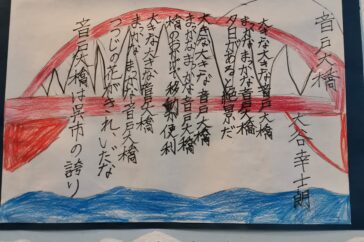 音戸大橋
大谷幸士朗
大きな大きな音戸大橋
まっかなまっかな音戸大橋
夕日があると絶景だ
大きな大きな音戸大橋
まっかなまっかな音戸大橋
橋のおかげで移動が便利
大きな大きな音戸大橋
まっかなまっかな音戸大橋
つつじの花がきれいだな
音戸大橋は呉市の誇り